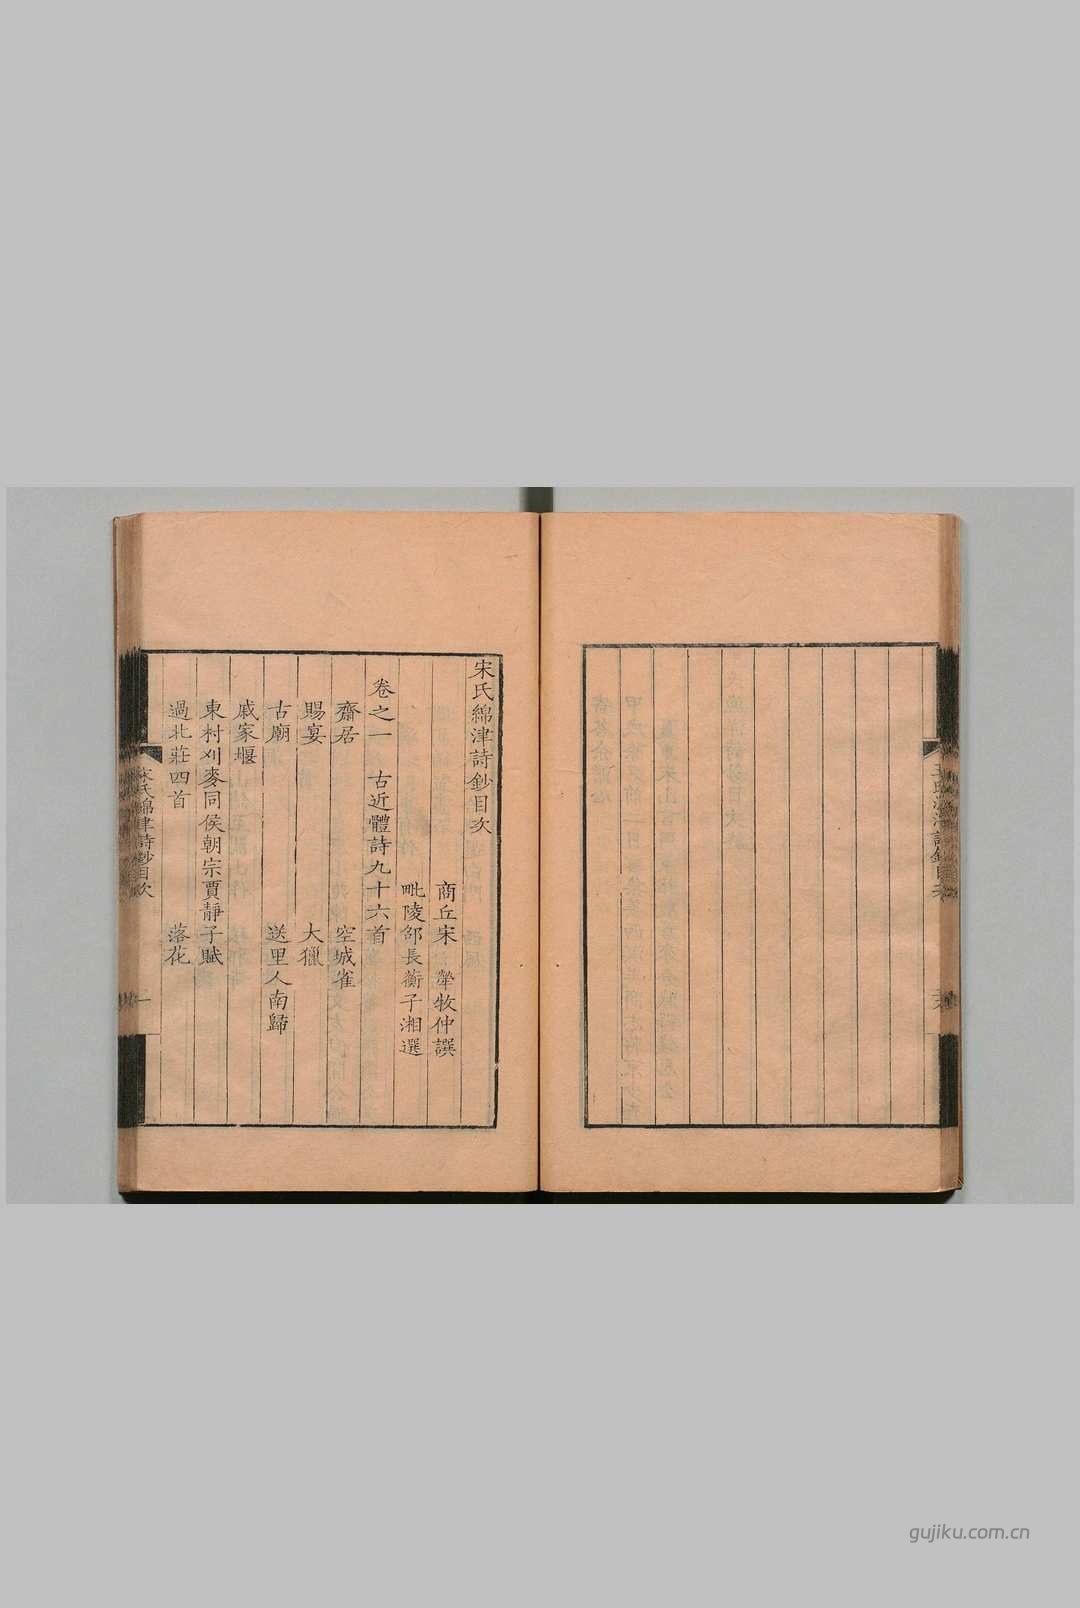 宋氏綿津詩鈔目次
商丘宋犖牧仲譔
毗陵邵長蘅子湘選
卷之一 古近體詩九十六首
齋居 空城雀
賜宴 大獵
古廟 送里人南歸
戚家堰
東村刈麥同侯朝宗賈靜子賦
過北莊四首 落花
宋氏綿津詩鈔目次 一
gujiku.com.cn